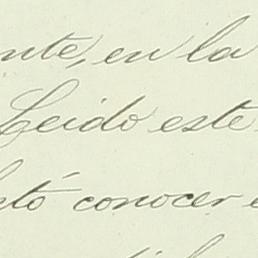 nte, en la
Leido este
tó conocer